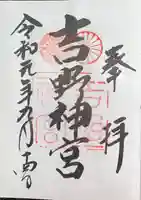 奉拝
吉野神宮
令和元年九月